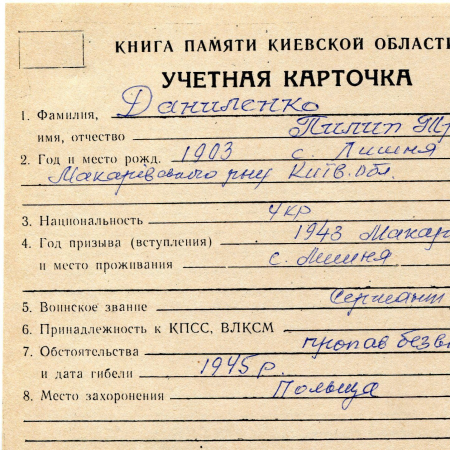 КНИГА ПАМЯТИ КИЕВСКОЙ ОБЛАСТИ
УЧЕТНАЯ КАРТОЧКА
1. Фамилия, Даниленко
имя, отчество Пилип Тр
2. Год и место рожд. 1903 с Лишня
Макарівського рну Київ. обл.
3. Национальность укр
4. Год призыва (вступления) 1943 Макар
и место проживания с. Лишня
5. Воинское звание Сержант
6. Принадлежность к КПСС, ВЛКСМ
7. Обстоятельства пропав безв
и дата гибели 1945 р.
8. Место захоронения Польща